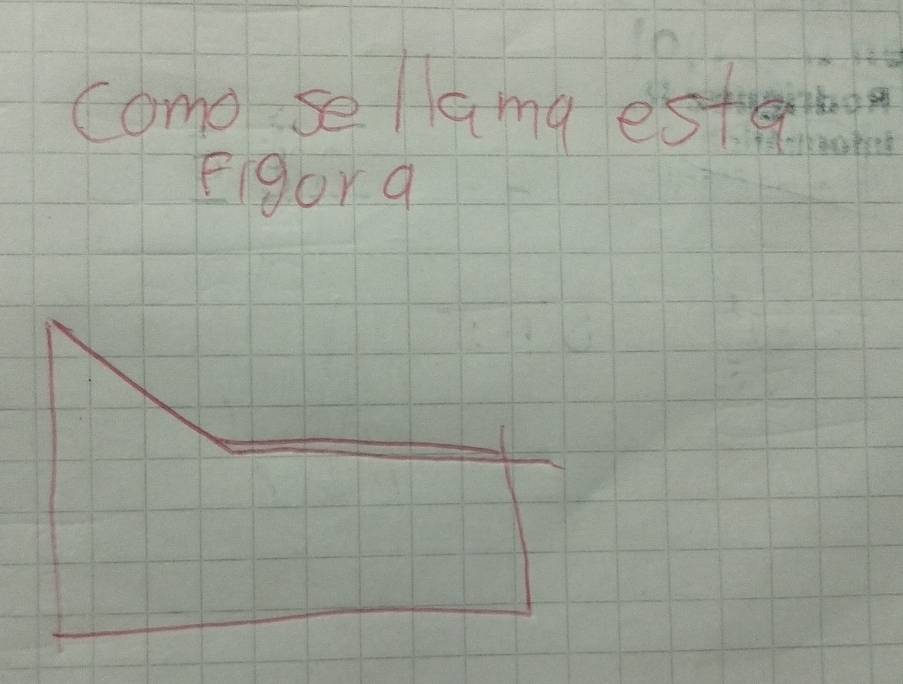 Como se llama esta
Figora